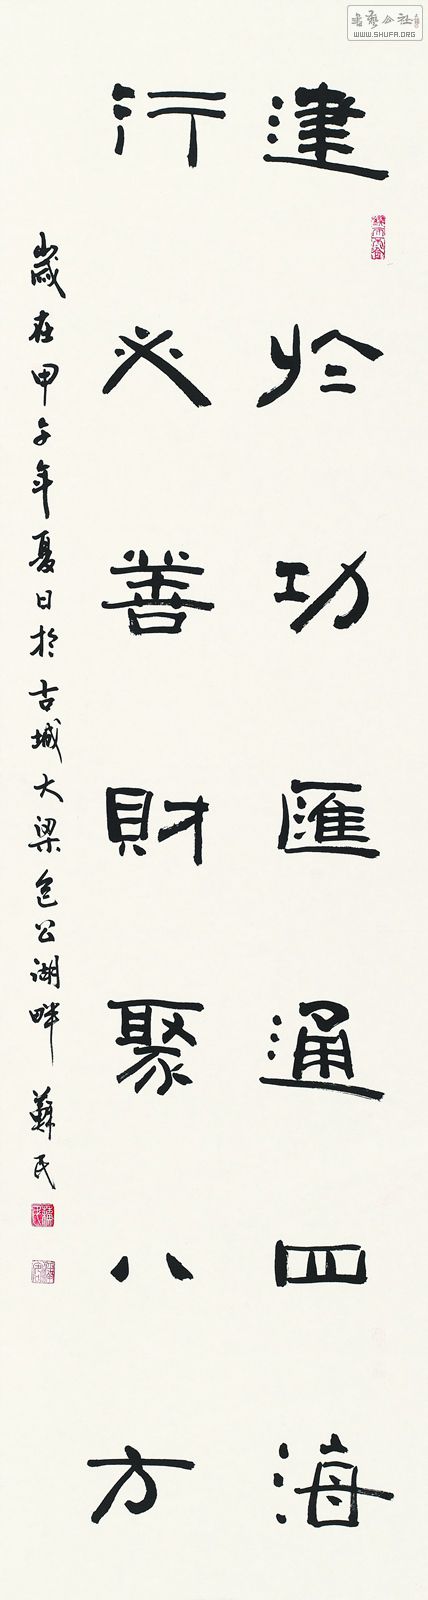 建於功匯通四海
行必善財聚八方
歲在甲午年夏日於古城大梁包公湖畔 蘇民
WWW.SHUFA.ORG